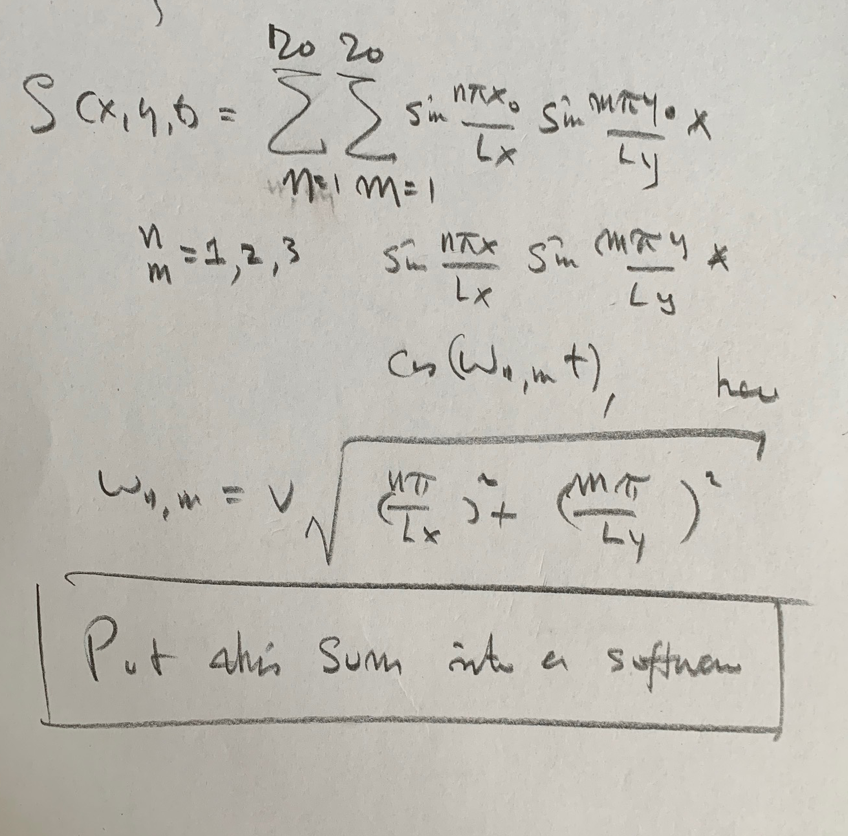 20 20
S(x,y,t) = ∑ ∑ sin nπx₀/Lx sin mπy₀/Ly ×
n=1 m=1
n
m = 1,2,3 sin nπx/Lx sin mπy/Ly ×
cos(ωn,m t),
ωn,m = v √((nπ/Lx)² + (mπ/Ly)²)
Put this sum into a software